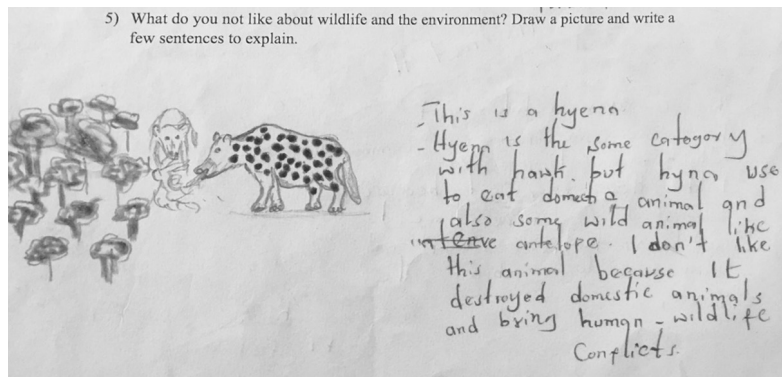 5) What do you not like about wildlife and the environment? Draw a picture and write a
few sentences to explain.
- This is a hyena
- Hyena is the some catogory
with hawk. but hyna use
to eat domest a animal and
also some wild animal like
antelope. I don't like
this animal because It
destroyed domestic animals
and bring human - wildlife
Conflicts.